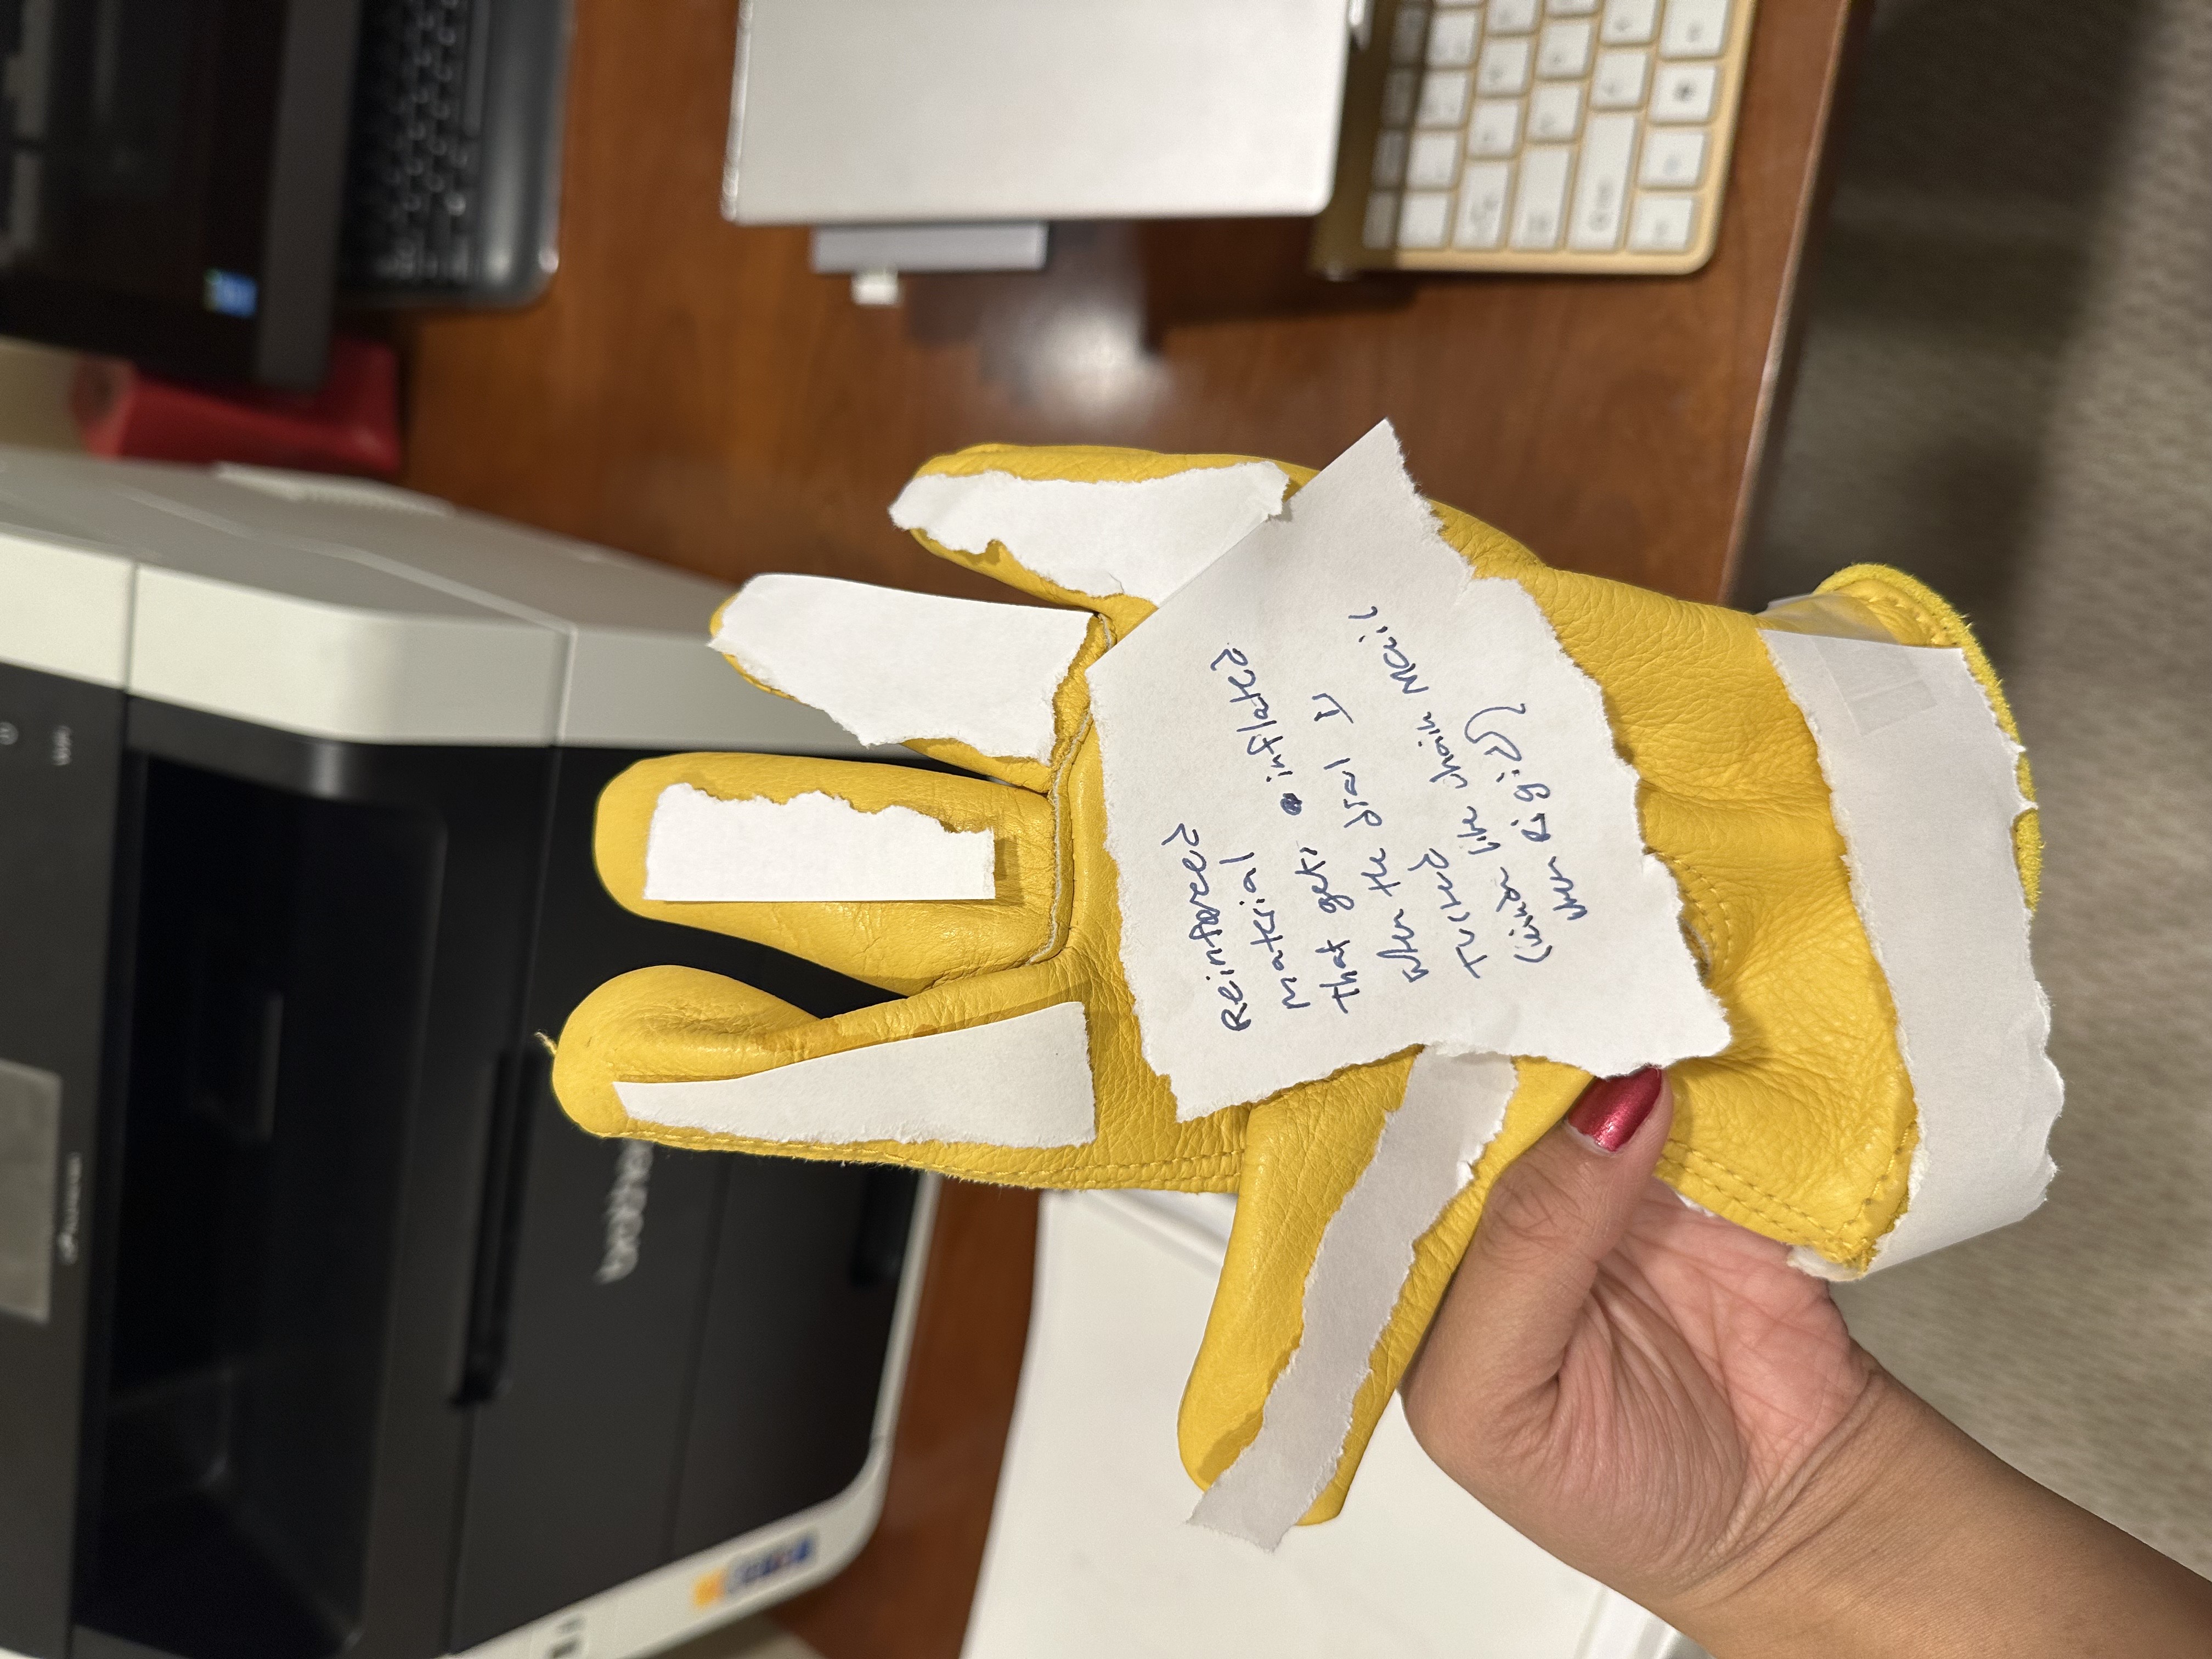 WiFi
brother
Reinforced
material
that gets inflated
when the dial is
Turned
(kinda like chain mail
when Rigid)